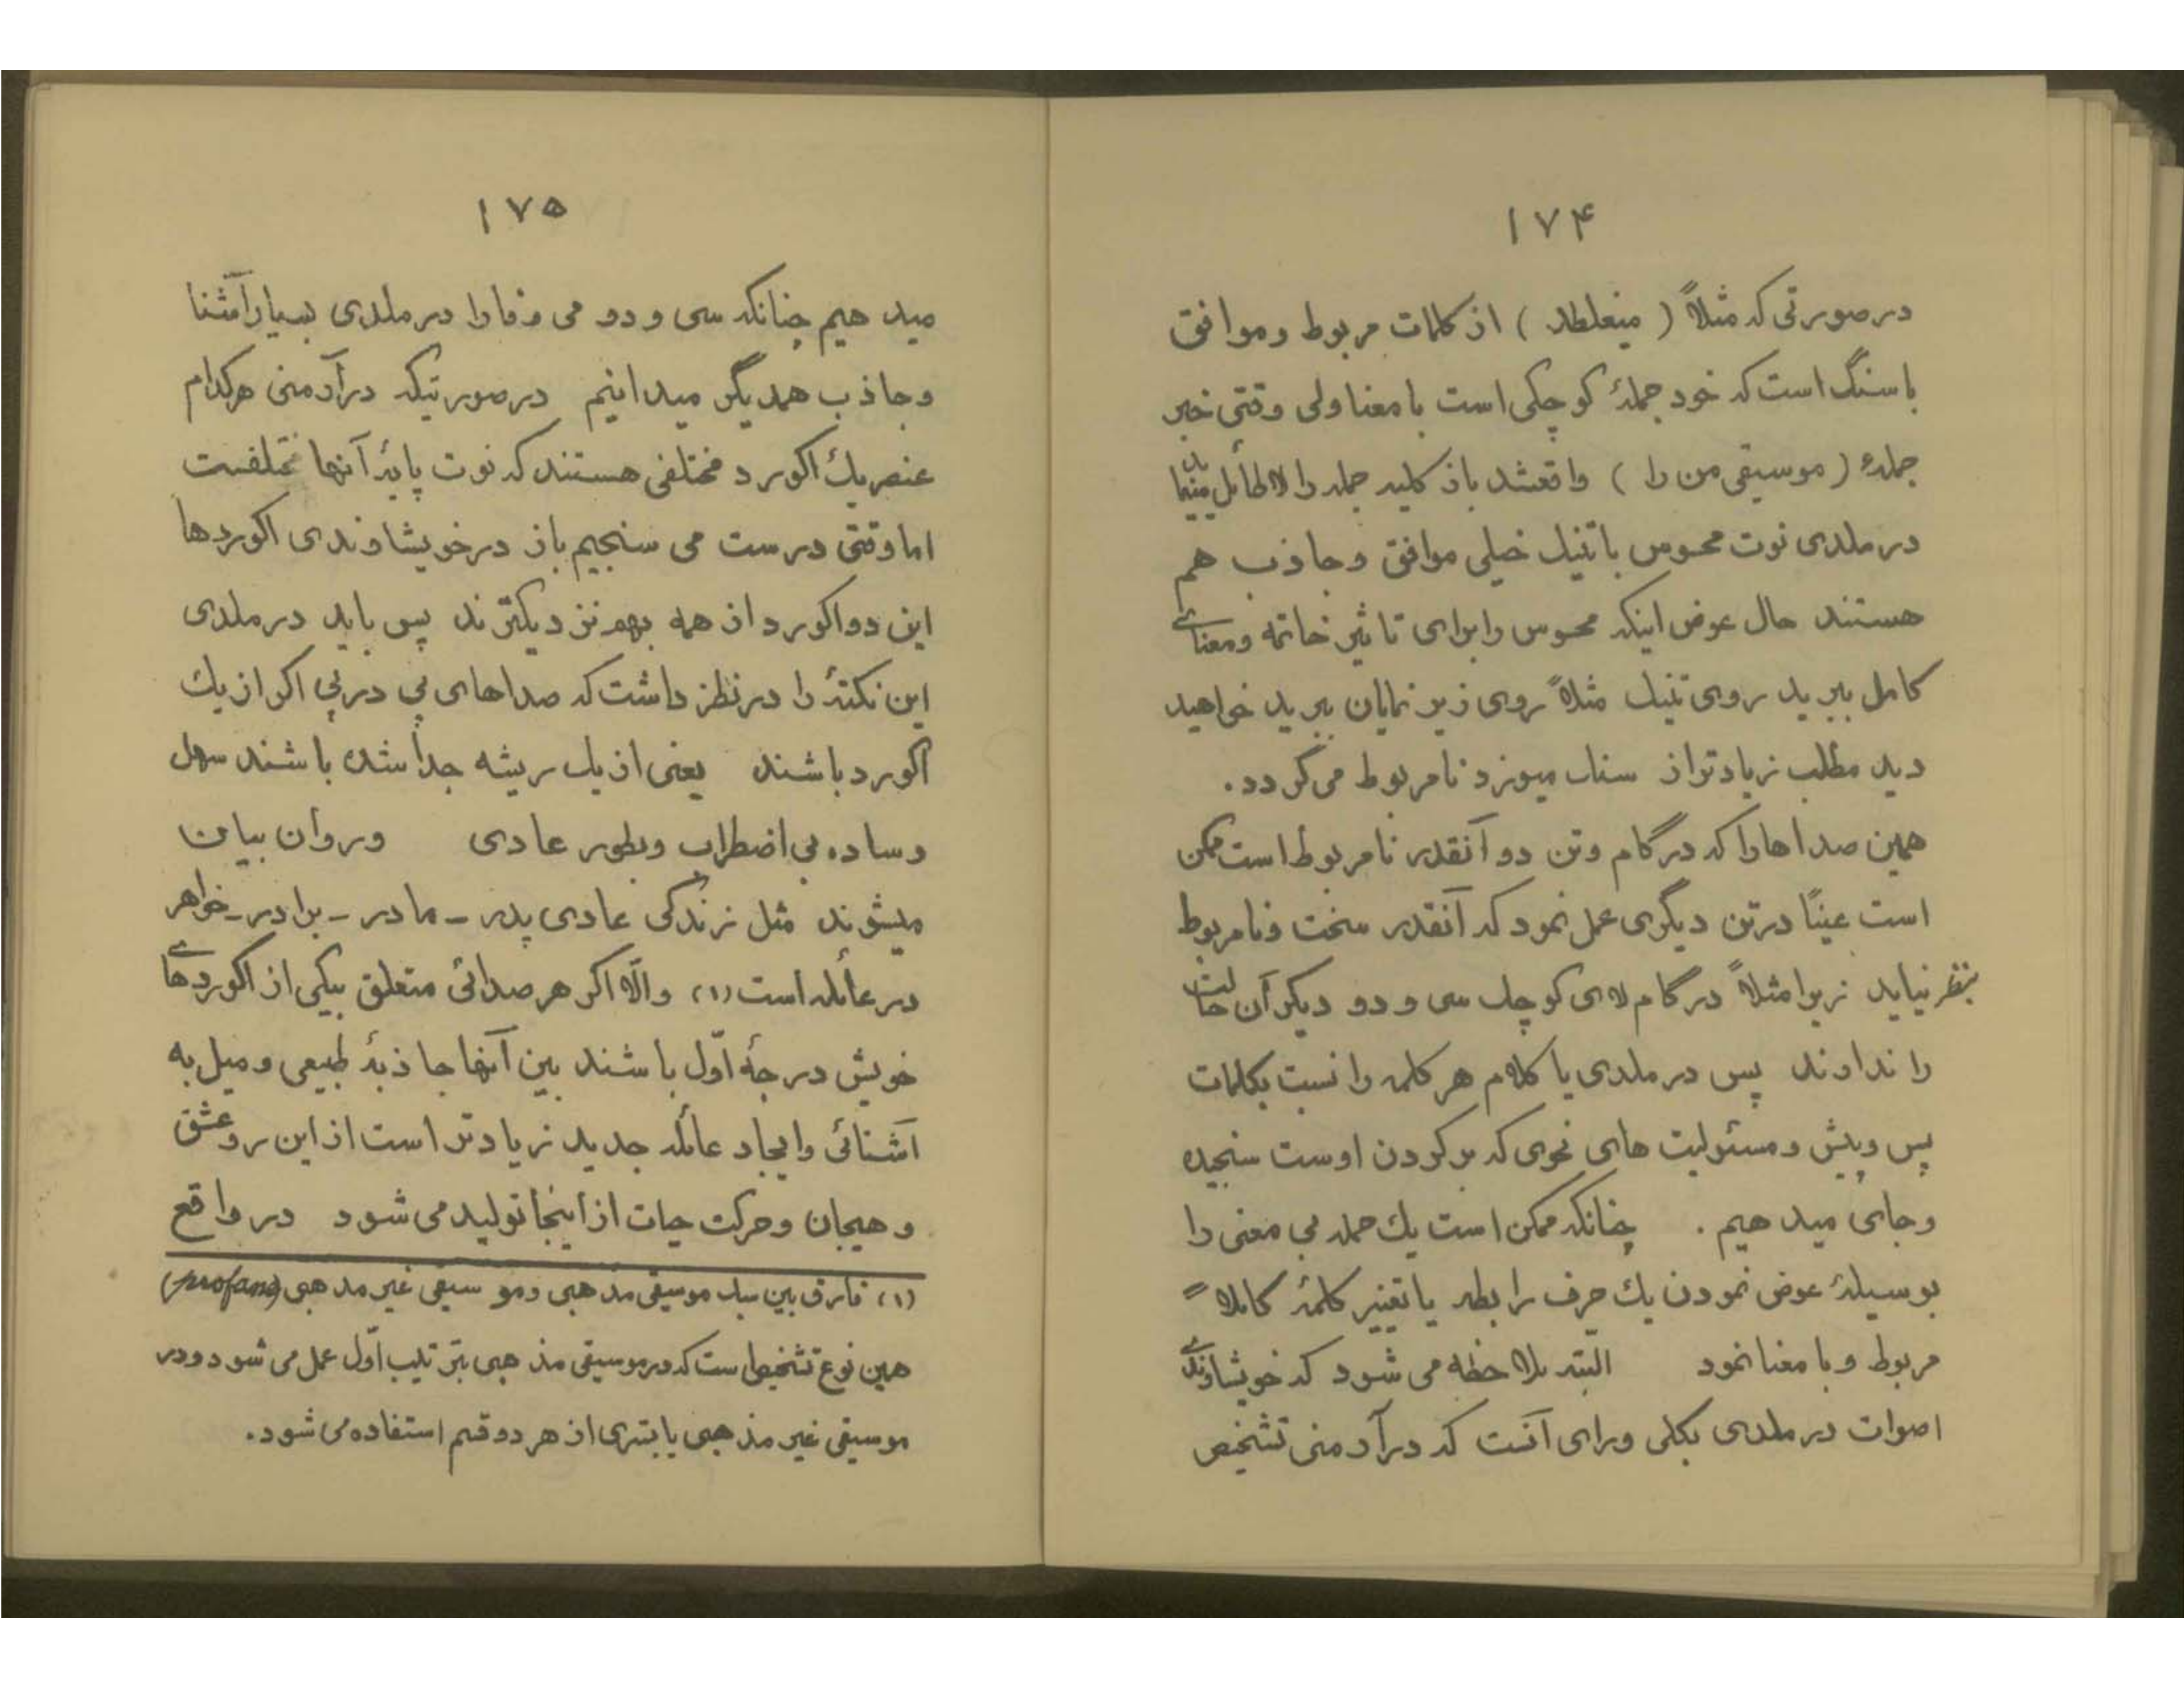 ۱۷۴
در صورتی که مثلاً ( میغلطد ) از کلمات مربوط و موافق
با سنگ است که خود جملهٔ کوچکی است با معنا ولی وقتی خبر
جملهٔ ( موسیقی من را ) واقعشد باز کلیه جمله را لاطائل مینماید
در ملدی نوت محسوس با تنیک خیلی موافق و جاذب هم
هستند حال عوض اینکه محسوس را برای تاثیر خاتمه و معنای
کامل ببرید روی تنیک مثلاً روی زیر نمایان ببرید خواهید
دید مطلب زیادتر از سناب میوزد نامربوط می گردد .
همین صداها را که در گام و تن دو آنقدر نامربوط است ممکن
است عیناً در تن دیگری عمل نمود که آنقدر سخت و نامربوط
بنظر نیاید زیرا مثلاً در گام لای کوچک سی و دو دیگر آن حالت
را ندارند پس در ملدی یا کلام هر کلمه را نسبت بکلمات
پس و پیش و مسئولیت های نحوی که بر گردن اوست سنجیده
و جای میدهیم . چنانکه ممکن است یک جمله بی معنی را
بوسیلهٔ عوض نمودن یک حرف رابطه یا تغییر کلمهٔ کاملاً
مربوط و با معنا نمود البته ملاحظه می شود که خویشاوندی
اصوات در ملدی بکلی ورای آنست که در آرمنی تشخیص
۱۷۵
میدهیم چنانکه سی و دو می و فا را در ملدی بسیار آشنا
و جاذب همدیگر میدانیم در صورتیکه در آرمنی هر کدام
عنصر یک اکورد مختلفی هستند که نوت پایهٔ آنها مختلفست
اما وقتی درست می سنجیم باز در خویشاوندی اکوردها
این دو اکورد از همه بهم نزدیکترند پس باید در ملدی
این نکتهٔ را در نظر داشت که صداهای پی در پی اگر از یک
اکورد باشند یعنی از یک ریشه جدا شده باشند سهل
و ساده بی اضطراب و بطور عادی و روان بیان
میشوند مثل زندگی عادی پدر - مادر - برادر - خواهر
در عائله است (۱) و الّا اگر هر صدائی متعلق بیکی از اکوردهای
خویش درجهٔ اوّل باشند بین آنها جاذبهٔ طبیعی و میل به
آشنائی و ایجاد عائله جدید زیادتر است از این رو عشق
و هیجان و حرکت حیات از اینجا تولید می شود در واقع
(۱) فارق بین سبک موسیقی مذهبی و موسیقی غیر مذهبی (profane)
همین نوع تشخیص است که در موسیقی مذهبی بترتیب اوّل عمل می شود و در
موسیقی غیر مذهبی یا بشری از هر دو قسم استفاده می شود .